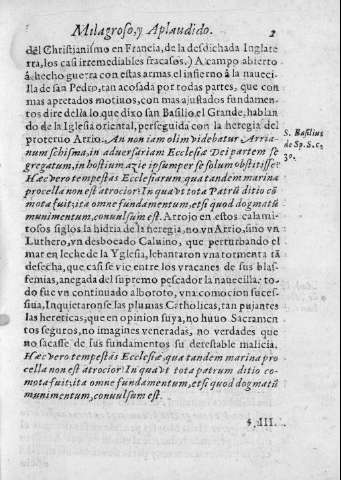 Milagroso, y Aplaudido. 2
del Christianismo en Francia, de la desdichada Inglate
rra, los casi irremediables fracasos.) A campo abierto
à hecho guerra con estas armas el infierno à la naueci-
lla de san Pedro, tan acosada por todas partes, que con
mas apretados motiuos, con mas ajustados fundamen-
tos dire della lo que dixo san Basilio el Grande, hablan
do de la Iglesia oriental, perseguida con la heregia del
proteruo Arrio. An non iam olim videbatur Arria-
num schisma, in aduersariam Ecclesiæ Dei partem se
gregatum, in hostium acie ipsum per se solum obstitisse?
Hæc vero tempestas Ecclesiarum qua tandem marina
procella non est atrocior? In qua vt tota Patrũ ditio cõ
mota fuit; ita omne fundamentum, etsi quod dogmatũ
munimentum, conuulsum est. Arrojo en estos calami-
tosos siglos la hidria de la heregia, no vn Arrio, sino vn
Luthero, vn desbocado Caluino, que perturbando el
mar en leche de la Yglesia, lebantaron vna tormenta tã
desecha, que casi se vio entre los vracanes de sus blas-
femias, anegada del supremo pescador la nauecilla: to-
do fue vn continuado alboroto, vna comocion suces-
siua, Inquietaronse las plumas Catholicas, tan pujantes
las hereticas, que en opinion suya, no huuo Sacramen
tos seguros, no imagines veneradas, no verdades que
no sacasse de sus fundamentos su detestable malicia.
Hæc vero tempestas Ecclesiæ, qua tandem marina pro
cella non est atrocior? In qua vt tota patrum ditio co-
mota fuit; ita omne fundamentum, etsi quod dogmatũ
munimentum, conuulsum est.
S. Basilius
de Sp. S. c.
30.
§. III.